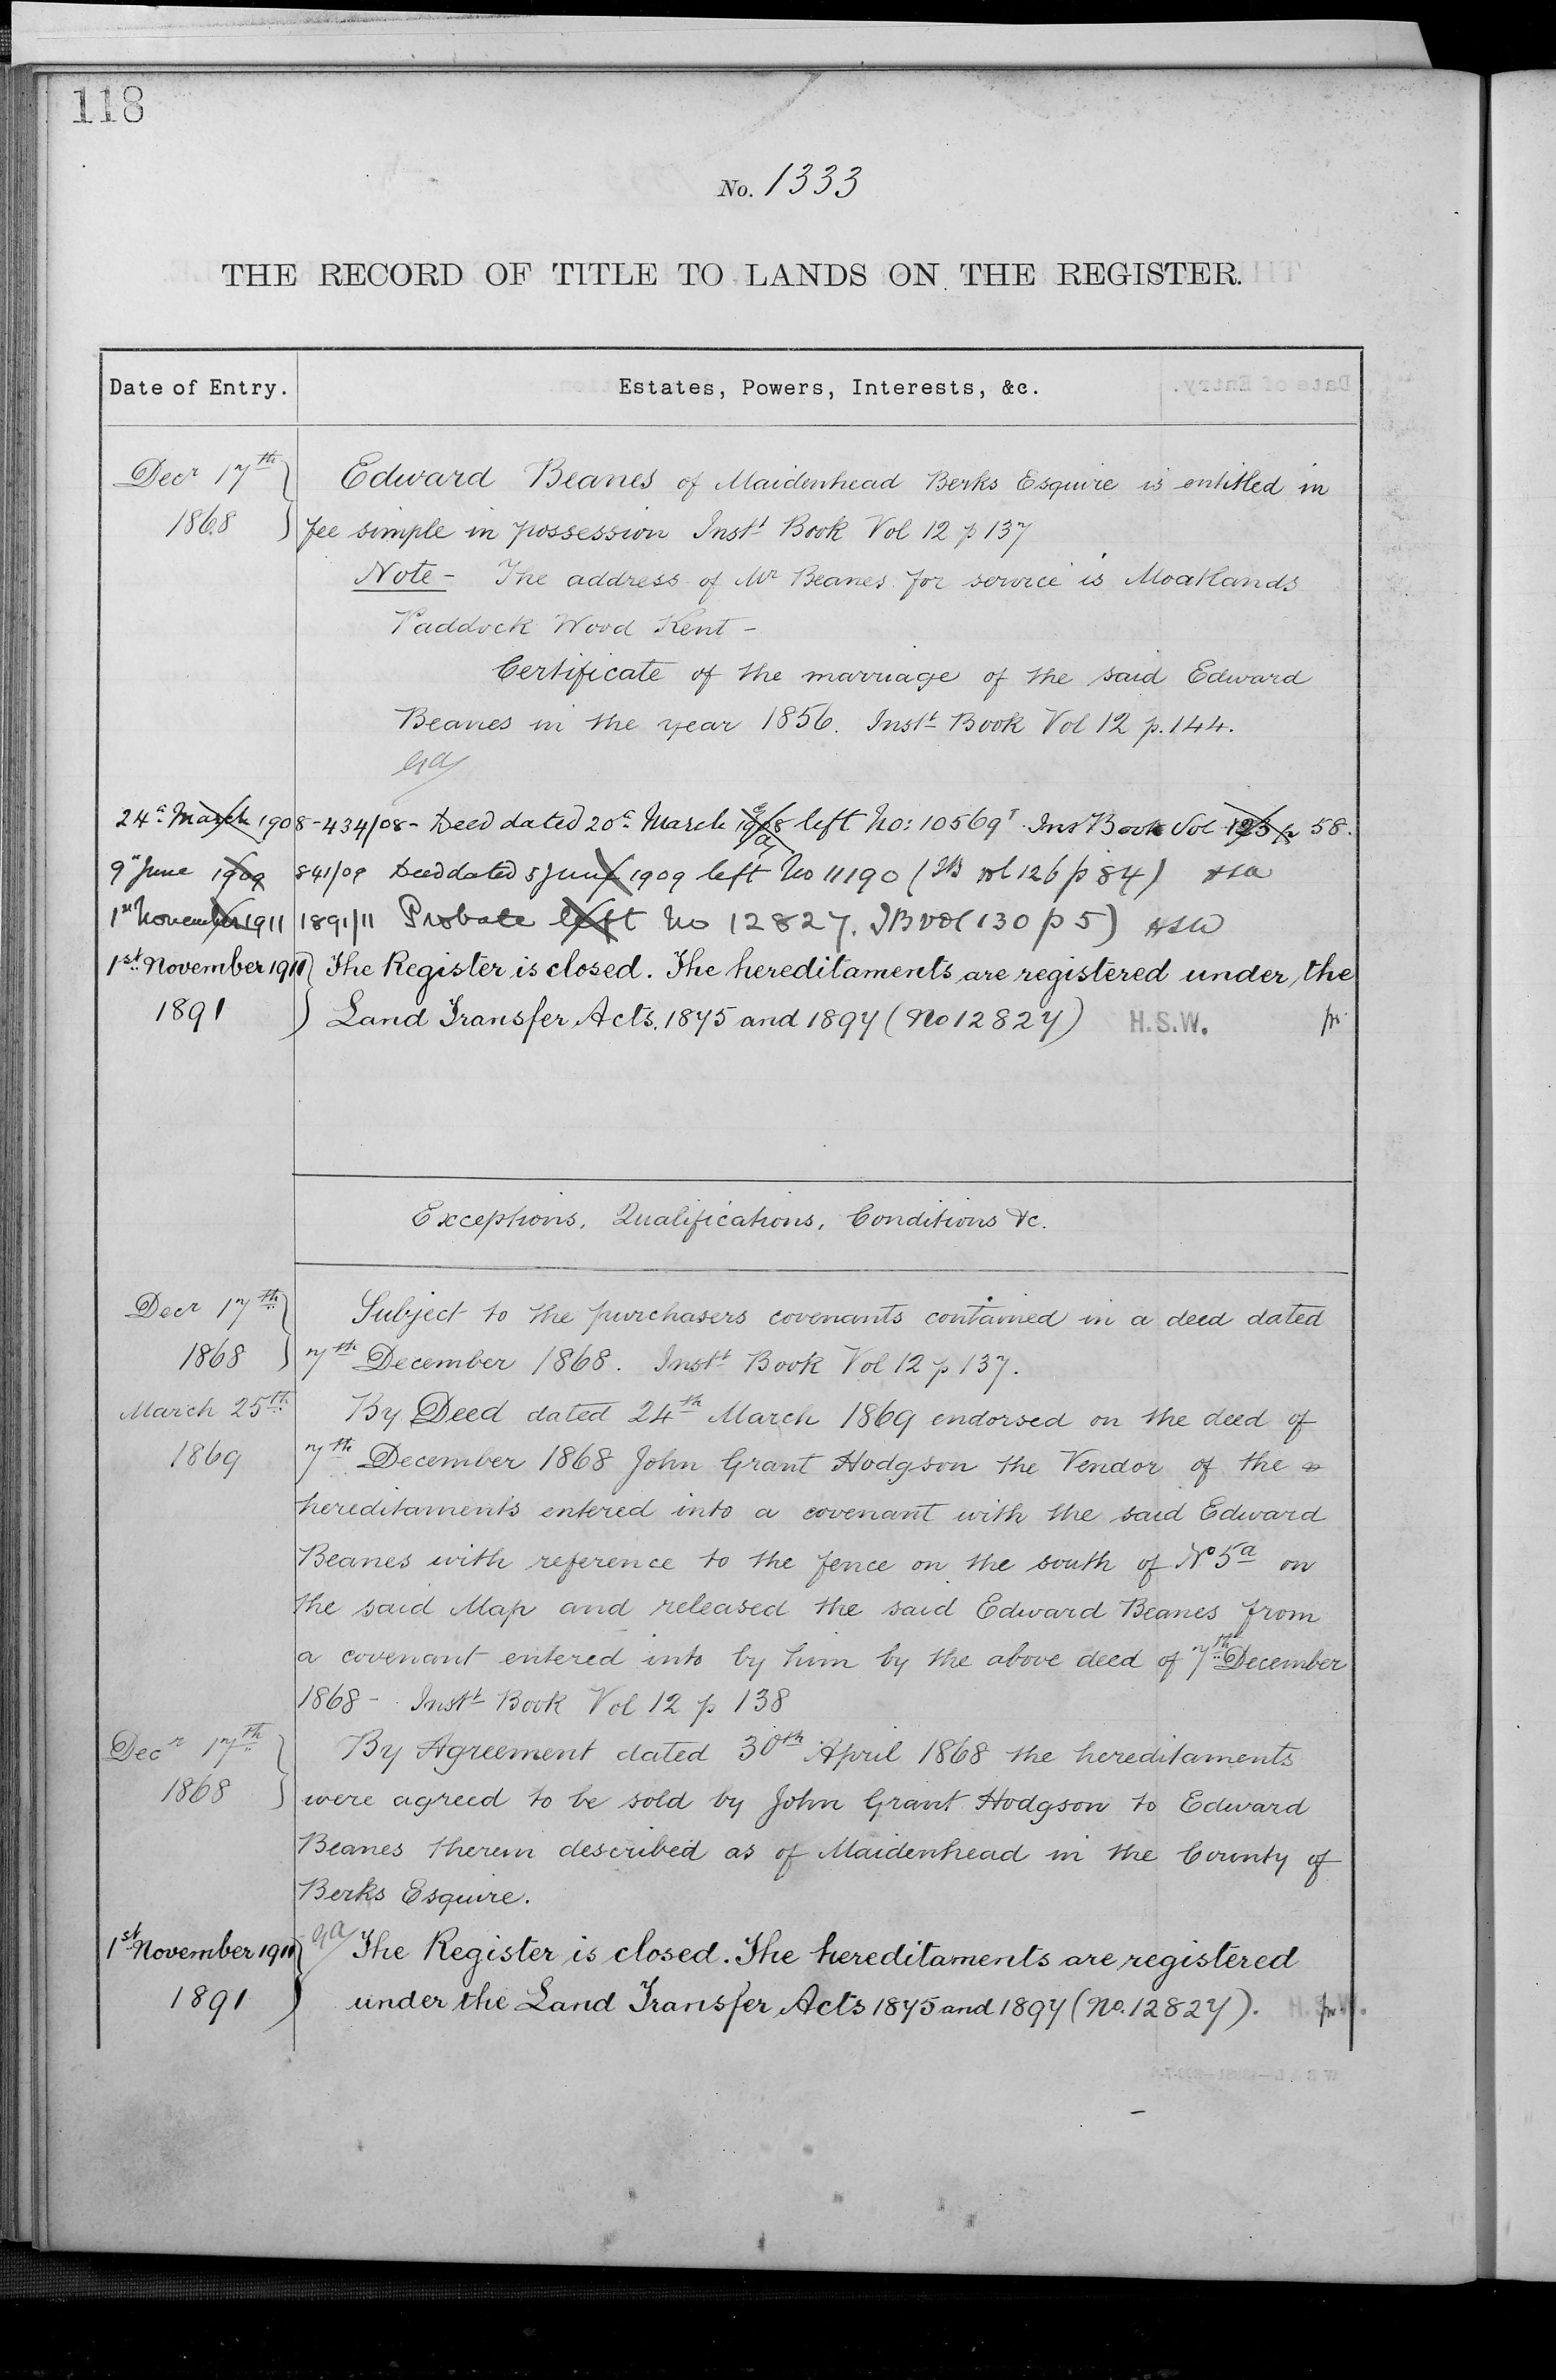 118
No. 1333
THE RECORD OF TITLE TO LANDS ON THE REGISTER.
Date of Entry. Estates, Powers, Interests, &c.
Decr 17th Edward Beanes of Maidenhead Berks Esquire is entitled in
1868 fee simple in possession Instt Book Vol 12 p 137
Note - The address of Mr Beanes for service is Moatlands
Paddock Wood Kent -
Certificate of the marriage of the said Edward
Beanes in the year 1856. Instt Book Vol 12 p. 144.
24th March 1908 - 434/08 - Deed dated 20th March 1908 left No: 10569 Inst Book Vol 123 p 58.
9th June 1909 841/09 Deed dated 5 June 1909 left No 11190 (IB vol 126 p 84) HSW
1st November 1911 1891/11 Probate left No 12827. IB vol (130 p 5) HSW
1st November 1911 The Register is closed. The hereditaments are registered under the
1891 Land Transfer Acts, 1875 and 1897 (No 12827) H.S.W.
Exceptions, Qualifications, Conditions &c.
Decr 17th Subject to the purchasers covenants contained in a deed dated
1868 7th December 1868. Instt Book Vol 12 p 137.
March 25th By Deed dated 24th March 1869 endorsed on the deed of
1869 7th December 1868 John Grant Hodgson the Vendor of the
hereditaments entered into a covenant with the said Edward
Beanes with reference to the fence on the south of No 5a on
the said Map and released the said Edward Beanes from
a covenant entered into by him by the above deed of 7th December
1868 - Instt Book Vol 12 p 138
Decr 17th By Agreement dated 30th April 1868 the hereditaments
1868 were agreed to be sold by John Grant Hodgson to Edward
Beanes therein described as of Maidenhead in the County of
Berks Esquire.
1st November 1911 The Register is closed. The hereditaments are registered
1891 under the Land Transfer Acts 1875 and 1897 (No. 12827). H.S.W.